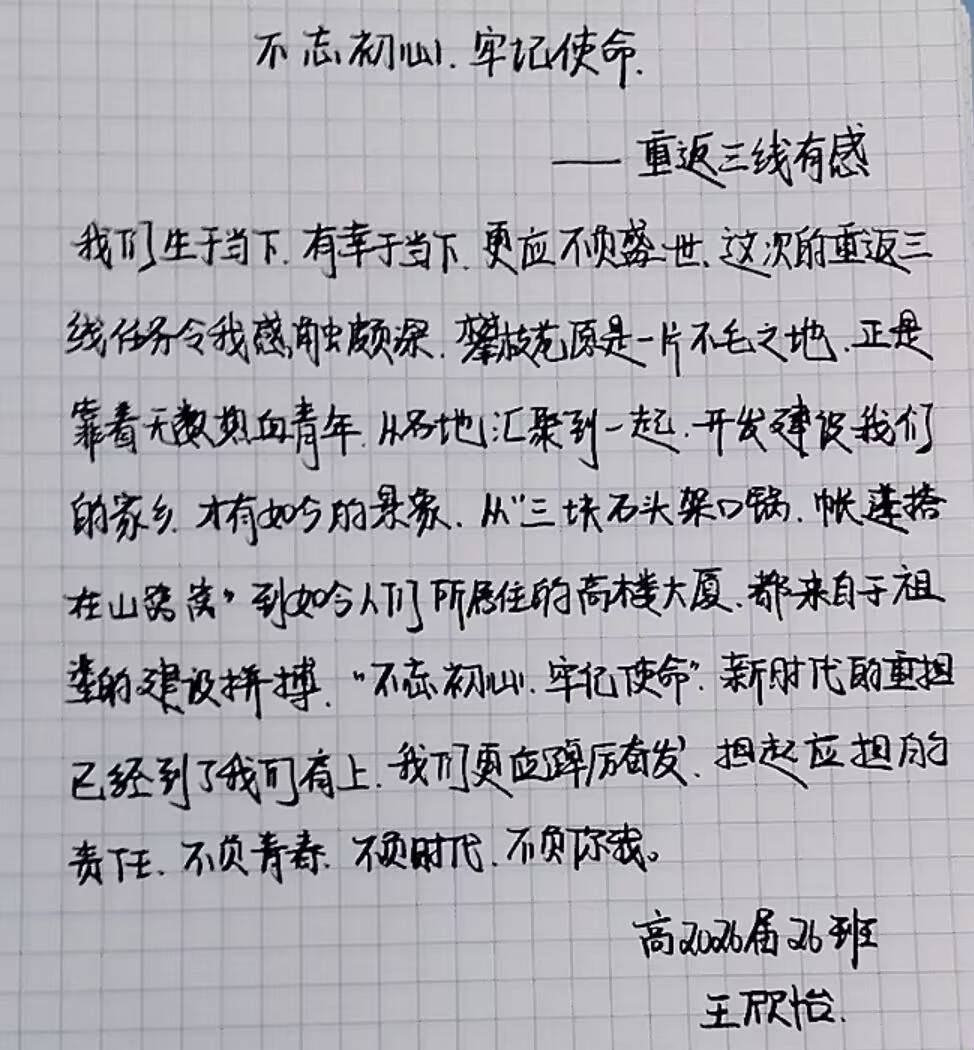 不忘初心.牢记使命.
——重返三线有感
我们生于当下.有幸于当下.更应不负盛世.这次的重返三
线任务令我感触颇深.攀枝花原是一片不毛之地.正是
靠着无数热血青年.从各地汇聚到一起.开发建设我们
的家乡.才有如今的景象.从“三块石头架口锅.帐蓬搭
在山窝窝”到如今人们所居住的高楼大厦.都来自于祖
辈的建设拼搏.“不忘初心.牢记使命”.新时代的重担
已经到了我们肩上.我们更应踔厉奋发.担起应担的
责任.不负青春.不负时代.不负你我。
高2026届26班
王欣怡.